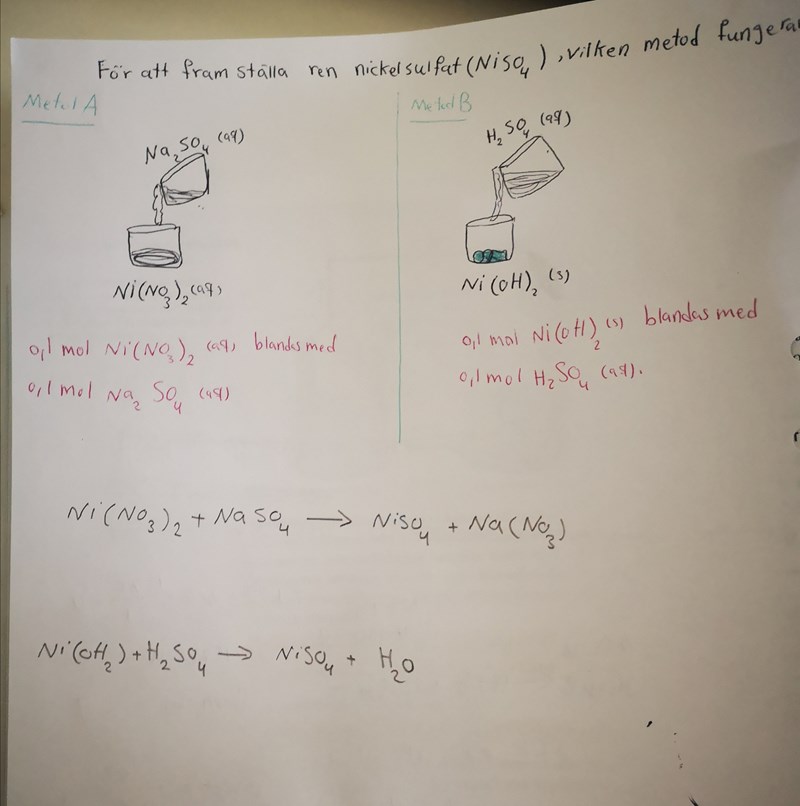 För att fram ställa ren nickelsulfat (NiSO₄), vilken metod fungerar
Metod A
Metod B
Na₂SO₄ (aq)
H₂SO₄ (aq)
Ni(NO₃)₂ (aq)
Ni(OH)₂ (s)
0,1 mol Ni(NO₃)₂ (aq) blandas med
0,1 mol Na₂SO₄ (aq)
0,1 mol Ni(OH)₂ (s) blandas med
0,1 mol H₂SO₄ (aq).
Ni(NO₃)₂ + NaSO₄ → NiSO₄ + Na(NO₃)
Ni(OH₂) + H₂SO₄ → NiSO₄ + H₂O